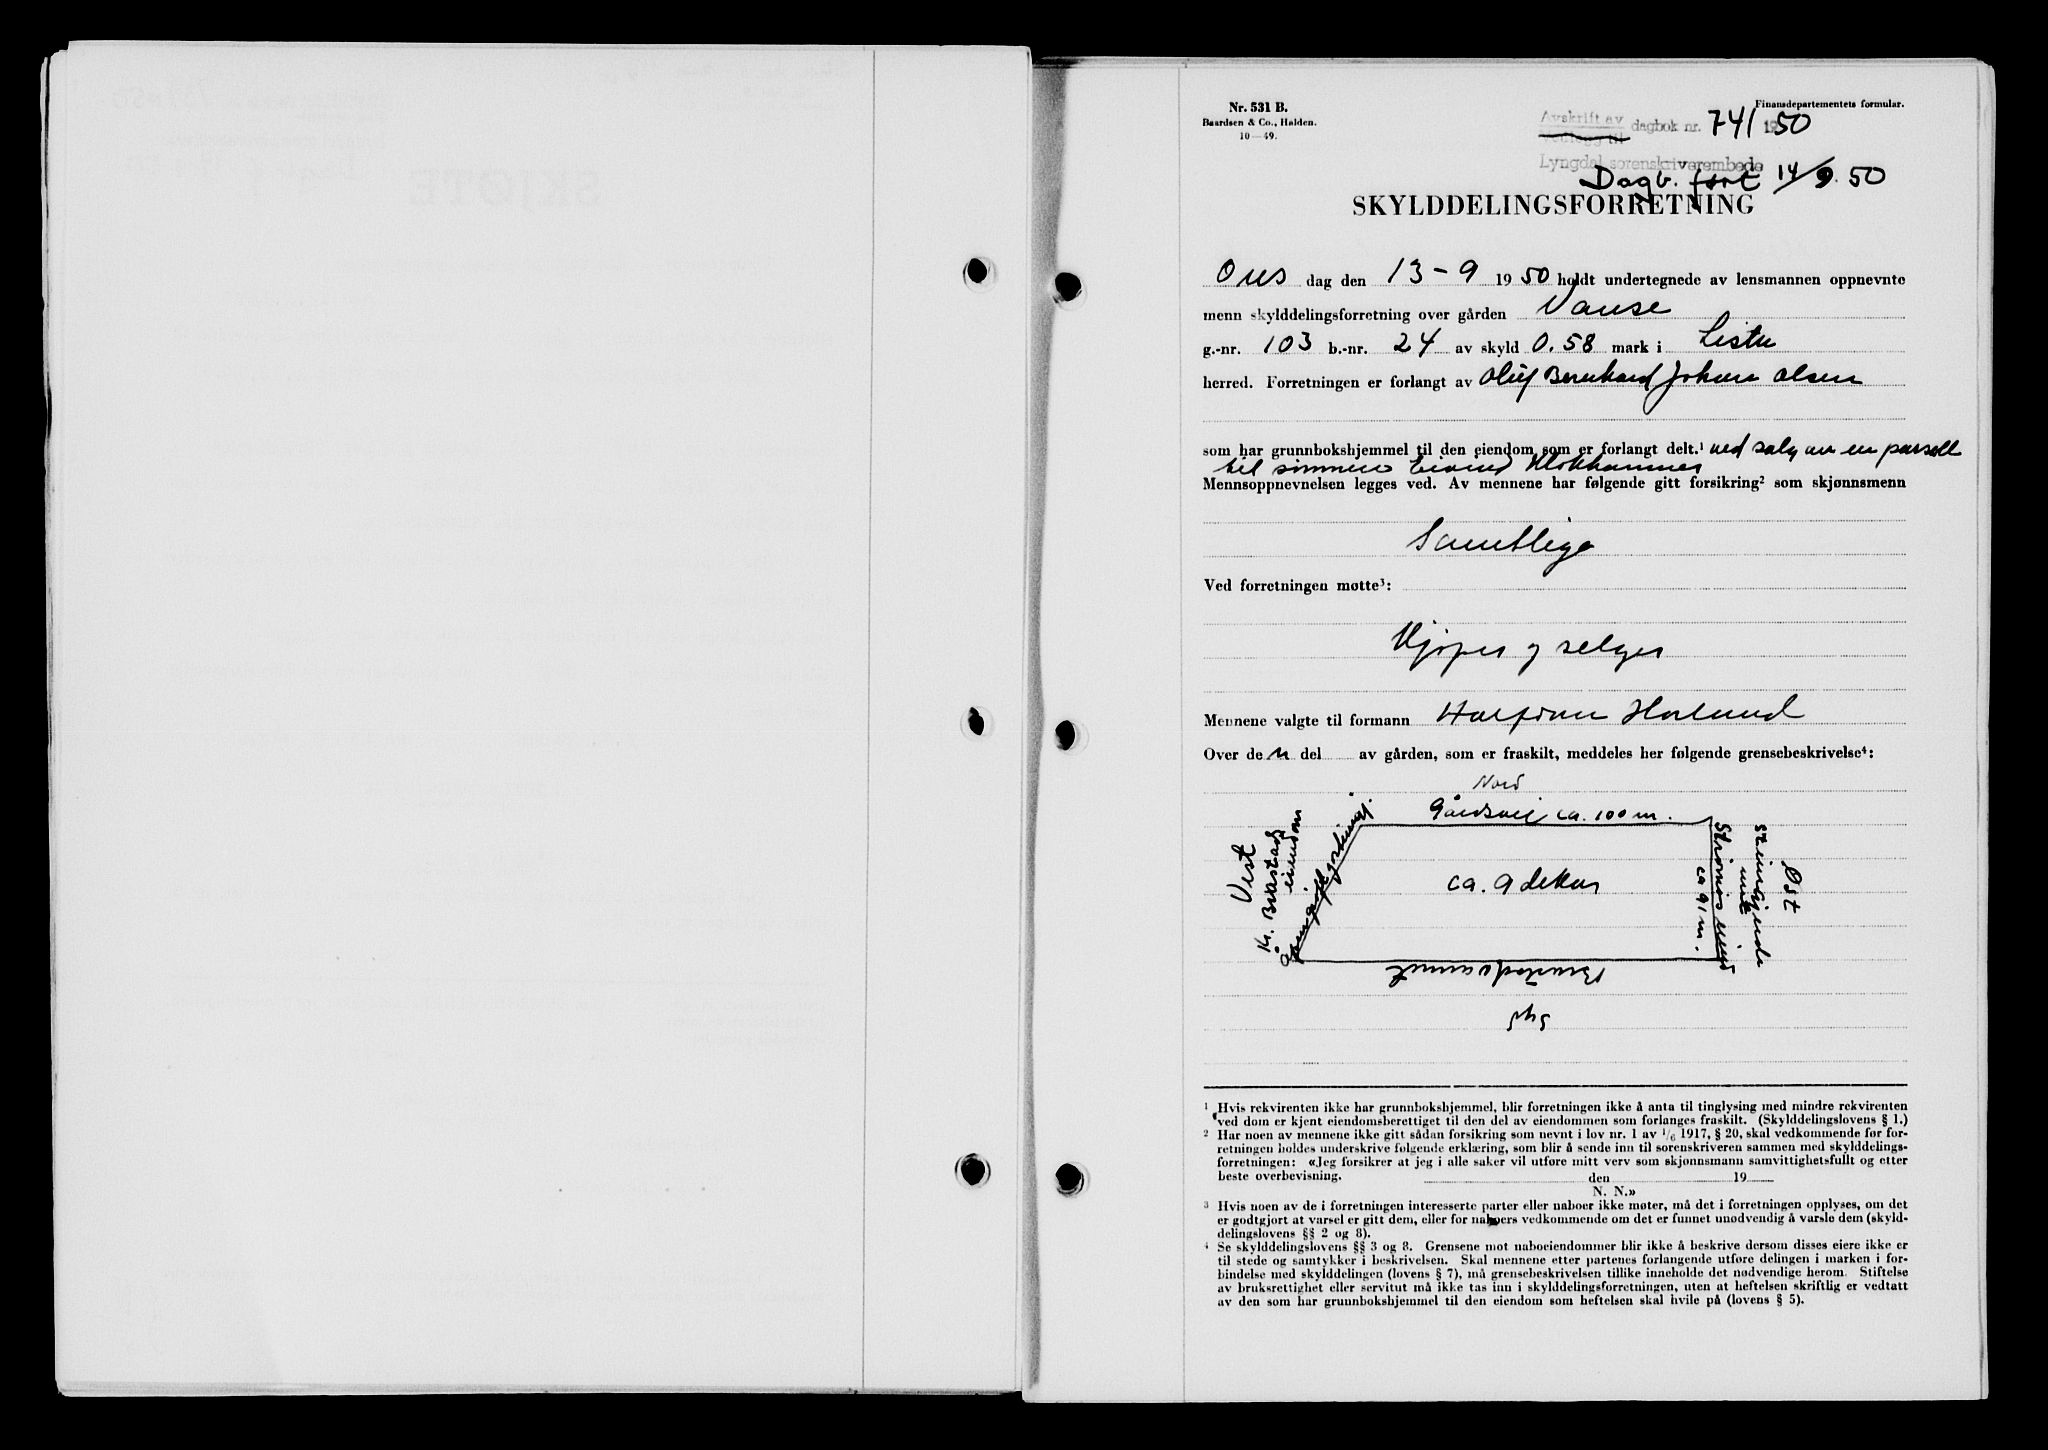 Nr. 531 B.
Baardsen & Co., Halden.
10—49.
Finansdepartementets formular.
Avskrift av
Vedlegg til
dagbok nr. 741 1950
Lyngdal sorenskriverembede
Dagb. ført 14/9. 50
SKYLDDELINGSFORRETNING
Ons dag den 13-9 1950 holdt undertegnede av lensmannen oppnevnte
menn skylddelingsforretning over gården Vanse
g.-nr. 103 b.-nr. 24 av skyld 0.58 mark i Lista
herred. Forretningen er forlangt av Oluf Bernhard Johan Olsen
som har grunnbokshjemmel til den eiendom som er forlangt delt.¹ ved salg av en parsell
til Eivind
Mennsoppnevnelsen legges ved. Av mennene har følgende gitt forsikring² som skjønnsmenn
Samtlige
Ved forretningen møtte³:
Kjøper og selger
Mennene valgte til formann Halfdan
Over de n del av gården, som er fraskilt, meddeles her følgende grensebeskrivelse⁴:
Nord
Gårdsvei ca. 100 m.
Vest
Kr. Brastad
eiendom
ca. 9 dekar
ca 91 m.
Steingjerde
Øst
Syd
¹ Hvis rekvirenten ikke har grunnbokshjemmel, blir forretningen ikke å anta til tinglysing med mindre rekvirenten
ved dom er kjent eiendomsberettiget til den del av eiendommen som forlanges fraskilt. (Skylddelingslovens § 1.)
² Har noen av mennene ikke gitt sådan forsikring som nevnt i lov nr. 1 av ¹/₆ 1917, § 20, skal vedkommende før for-
retningen holdes underskrive følgende erklæring, som blir å sende inn til sorenskriveren sammen med skylddelings-
forretningen: «Jeg forsikrer at jeg i alle saker vil utføre mitt verv som skjønnsmann samvittighetsfullt og etter
beste overbevisning. den 19
N. N.»
³ Hvis noen av de i forretningen interesserte parter eller naboer ikke møter, må det i forretningen opplyses, om det
er godtgjort at varsel er gitt dem, eller for naboers vedkommende om det er funnet unødvendig å varsle dem (skyld-
delingslovens §§ 2 og 8).
⁴ Se skylddelingslovens §§ 3 og 8. Grensene mot naboeiendommer blir ikke å beskrive dersom disses eiere ikke er
til stede og samtykker i beskrivelsen. Skal mennene etter partenes forlangende utføre delingen i marken i for-
bindelse med skylddelingen (lovens § 7), må grensebeskrivelsen tillike inneholde det nødvendige herom. Stiftelse
av bruksrettighet eller servitut må ikke tas inn i skylddelingsforretningen, uten at heftelsen skriftlig er vedtatt
av den som har grunnbokshjemmel til den eiendom som heftelsen skal hvile på (lovens § 5).